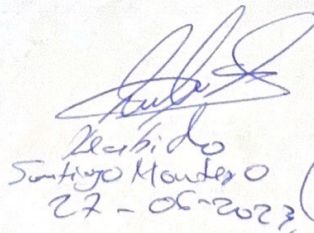 Recibido
Santiago Montero
27-06-2023